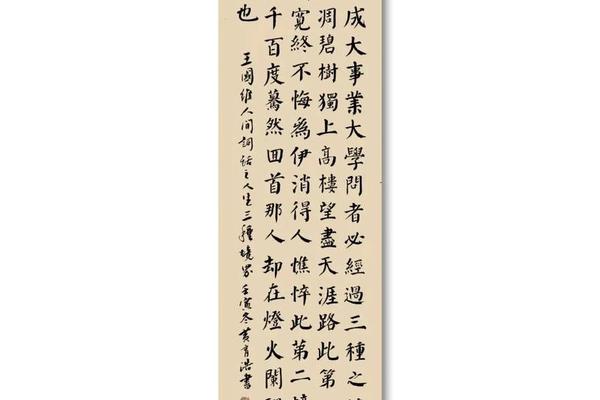 成大事業大學問者必經過三種之
凋碧樹獨上高樓望盡天涯路此第
寬終不悔爲伊消得人憔悴此第二
千百度驀然回首那人却在燈火闌
也
王國維人間詞話之人生三種境界壬寅冬黃育浩書